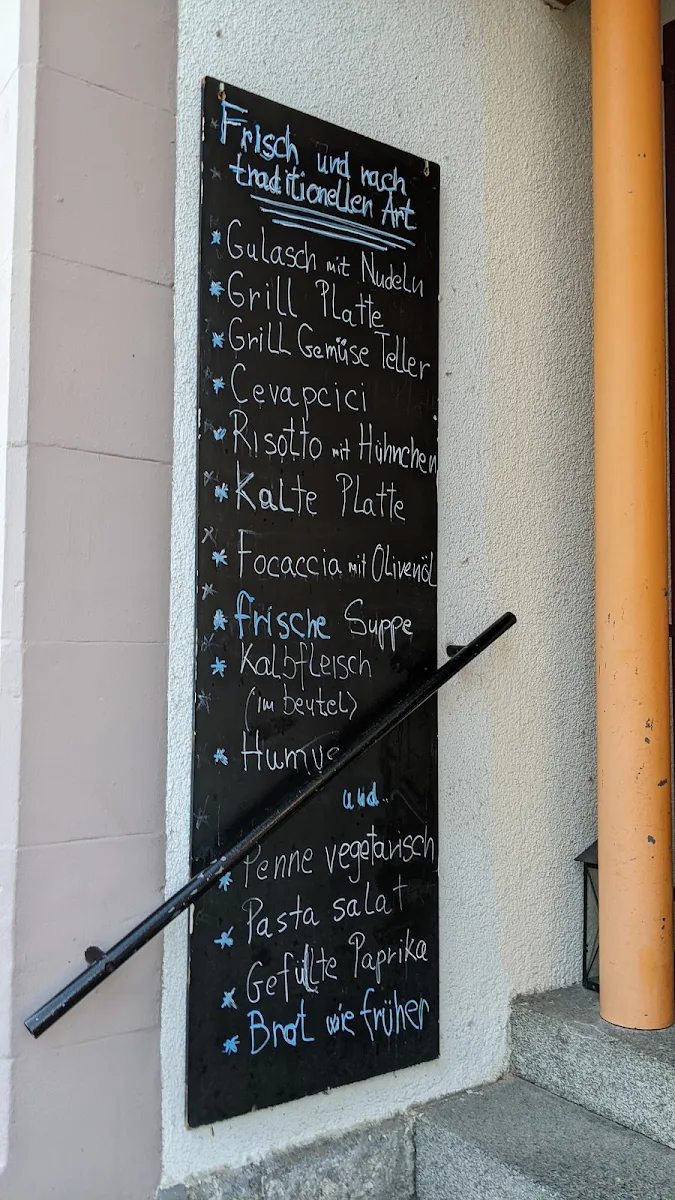 Frisch und nach
traditionellen Art
* Gulasch mit Nudeln
* Grill Platte
* Grill Gemüse Teller
* Cevapcici
* Risotto mit Hühnchen
* Kalte Platte
* Focaccia mit Olivenöl
* frische Suppe
* Kalbfleisch
(im beutel)
*
und..
* Penne vegetarisch
* Pasta salat
* Gefüllte Paprika
* Brot wie früher